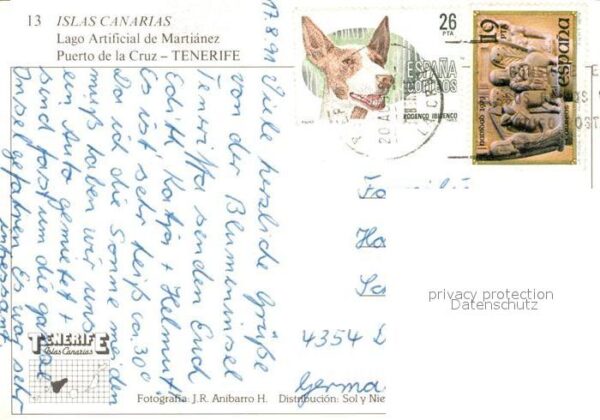 13 ISLAS CANARIAS
Lago Artificial de Martiánez
Puerto de la Cruz – TENERIFE
17.8.91
Viele herzliche Grüße
von der Blumeninsel
Teneriffa senden Euch
Edith, Katja + Helmut.
Es ist sehr heiß ca. 30°
Da ich die Sonne meiden
muß haben wir uns
ein Auto gemietet +
sind fast um die ganze
Insel gefahren. Es war sehr
interessant
26
PTA
ESPAÑA
CORREOS
PODENCO IBICENCO
19
PTS
españa
navidad 1981
Fa
Ha
4354
Germa
privacy protection
Datenschutz
TENERIFE
Islas Canarias
Fotografía: J.R. Anibarro H. Distribución: Sol y Nie